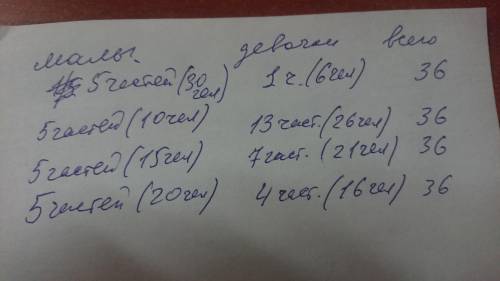 малы. девочки всего
5 частей (30 чел) 1 ч. (6 чел) 36
5 частей (10 чел) 13 част. (26 чел) 36
5 частей (15 чел) 7 част. (21 чел) 36
5 частей (20 чел) 4 част. (16 чел) 36